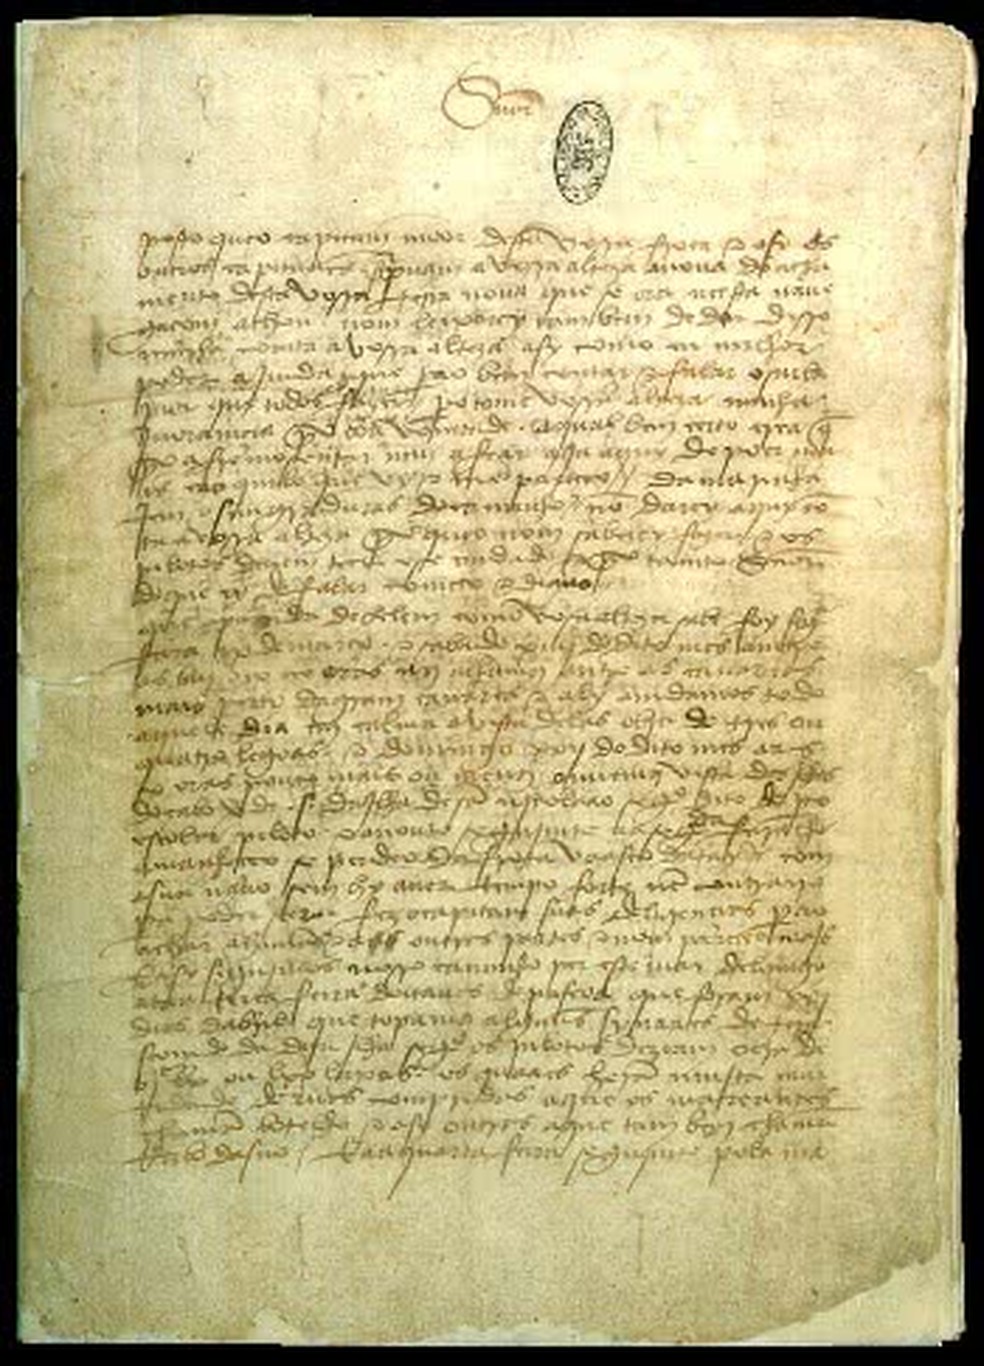 Snõr
posto queo capitam moor desta vossa frota e asy os
outros capitaães screpuam a vossa alteza anoua do acha
mento desta vossa terra noua que se ora neesta naue
gaçom achou. nom leixarey tambem de dar disso
minha comta a vossa alteza asy como eu milhor
poder ajmda que perao bem contar e falar o saiba
pior que todos fazer. pero tome vossa alteza minha
jnoramçia por boa vomtade. aqual bem certo crea q̃
por afremosentar nem afear aja aquy de poer ma
is ca aquilo que vy e me pareçeo / da marinha
jem e simgraduras do caminho nõ darey aquy cõ
ta a vossa alteza porqueo nom saberey fazer e os
pilotos deuem teer ese cuidado e por tanto Snõr
do que ey de falar começo e diguo
que apartida de belem como vossa alteza sabe foy segª
feira ix de março. e sabado xiiij do dito mes amtre
as biij e ix oras nos achamos antre as canareas
mais perto da gram canarea e aly amdamos todo
aquele dia em calma avista delas obra de tres ou
quatro legoas. e domingo xxij do dito mes aas
x oras pouco mais ou menos ouuemos vista das jlhas
do cabo verde .s. da jlha de sã njcolaao segº dito de pº
escolar piloto. e anoute segujmte aasegda feira lhe
amanheceo se perdeo da frota vaasco datayde com
asua naao sem hy auer tempo forte nẽ contrairo
pera poder seer. fez ocapitam suas deligençias perao
achar ahuũas e aoutras partes e nom pareçeo majs
E asy segujmos nosso caminho per este mar delomgo
ataa terça feira doitauas de pascoa que foram xxj
dias dabril que topamos alguũs synaaes de tera
seemdo da dita jlha segº os pilotos deziam obra de
bjc lx ou lxx legoas. os quaaes heram mujta cam
tidade deruas compridas aque os mareantes
chamã botelho e asy outras aque tambem chamã
Rabo dasno / E aaquarta feira segujmte pola ma